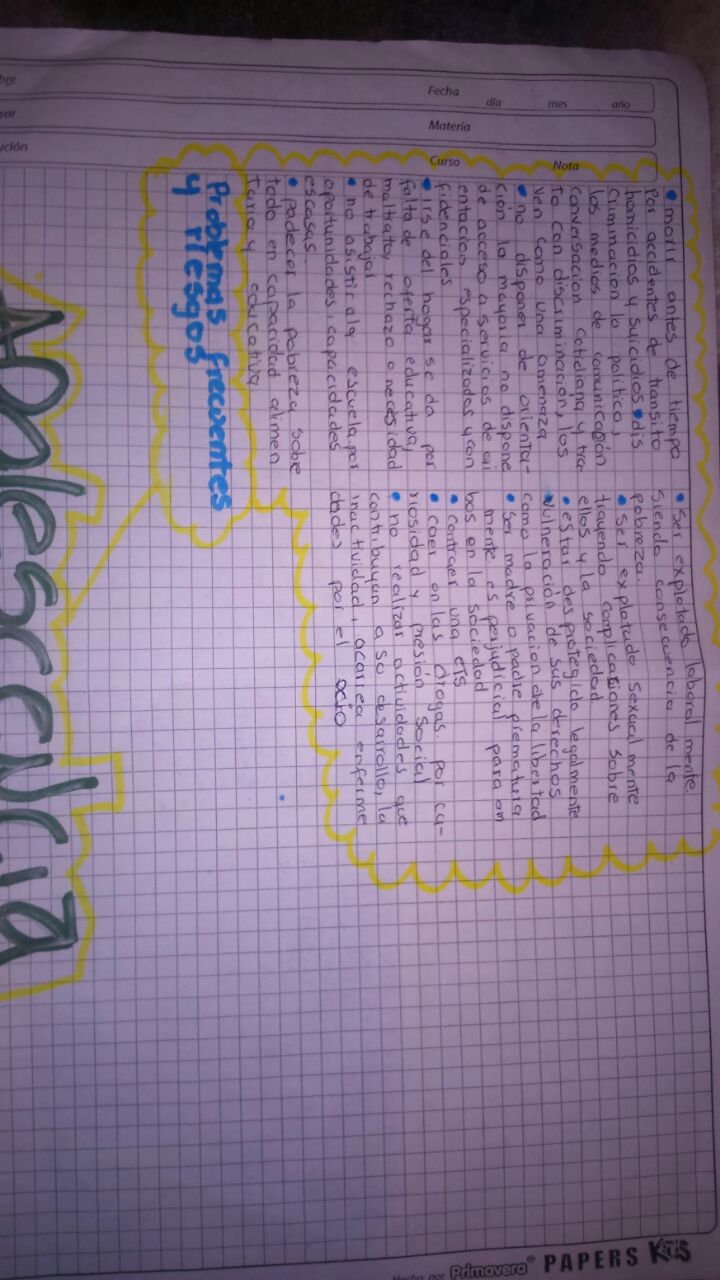 Fecha
día mes año
Materia
Curso
Nota
• morir antes de tiempo
por accidentes de transito
homicidios y suicidios • dis
criminación lo politico,
los medios de comunicación
conversacion cotidiana y tra
to con discriminación, los
ven como una amenaza
• no disponer de orienta-
ción la mayoria no dispone
de acceso a servicios de ori
entacion especializados y con
fidenciales
• irse del hogar se da por
falta de oferta educativa,
maltrato, rechazo o necesidad
de trabajar
• no asistir a la escuela, por
oportunidades, capacidades
escasas.
• padecer la pobreza sobre
todo en capacidad alimen
taria y educativa.
• Ser explotado laboral mente.
siendo consecuencia de la
pobreza.
• Ser explotado sexual mente
trayendo complicaciones sobre
ellos y la sociedad
• estar desprotegido legalmente
vulneración de sus derechos
como la privacion de la libertad
• Ser madre o padre prematura
mente es perjudicial para am
bos en la sociedad
• contraer una ETS
• caer en las drogas. por cu-
riosidad y presión social
• no realizar actividades que
contribuyan a su desarrollo, la
inactividad, acarea enferme
dades por el ocio
Problemas frecuentes
y riesgos
Adolescencia
Hecho por Primavera® PAPERS KIDS